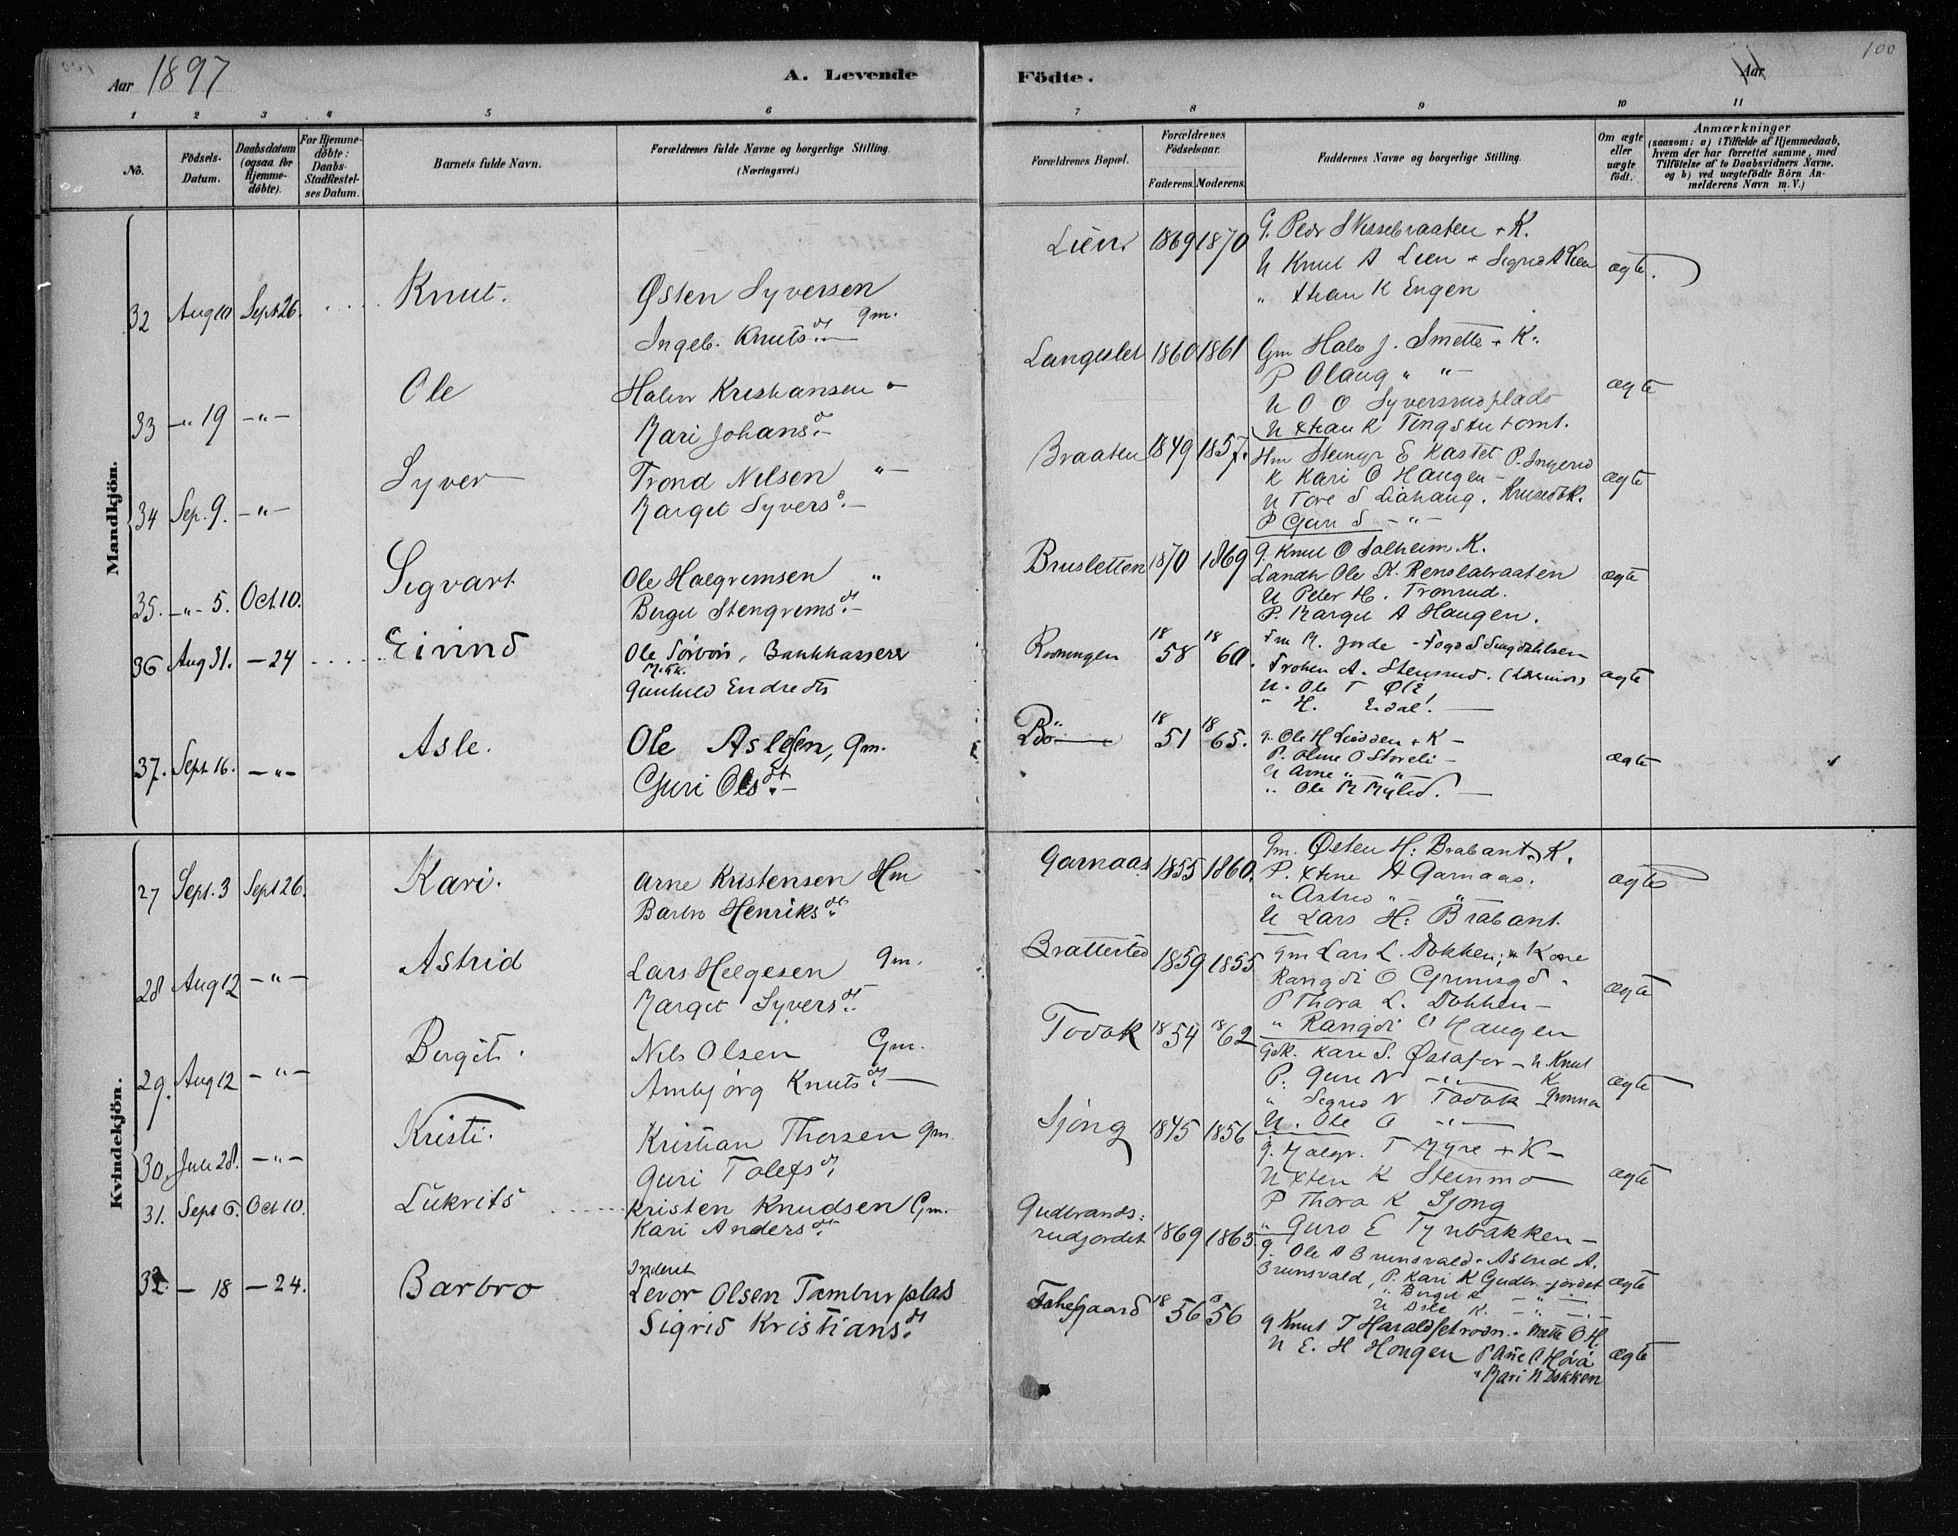 Aar 1897
A. Levende
Födte.
Aar
100
1 2 3 4 5 6 7 8 9 10 11
No.
Födsels-Datum.
Daabsdatum (ogsaa for Hjemme-döbte).
For Hjemme-döbte: Daabs-Stadfæstel-ses Datum.
Barnets fulde Navn.
Forældrenes fulde Navne og borgerlige Stilling.
(Næringsvei.)
Forældrenes Bopæl.
Forældrenes Födselsaar.
Faderens. Moderens.
Faddernes Navne og borgerlige Stilling.
Om ægte eller uægte födt.
Anmærkninger
(saasom: a) i Tilfælde af Hjemmedaab, hvem der har forrettet samme, med Tilföielse af to Daabsvidners Navne, og b) ved uægtefödte Börn An-melderens Navn m. V.)
Mandkjön.
32 Aug 10 Sept 26. Knut. Østen Syversen gm.
Ingeb. Knutsdt. —
Lien. 1869 1870 G. Peder + K.
U Knut A Lien + Sigrid A Lien
" K Engen
ægte.
33 -"- 19 -"- Ole Halvor Kristiansen "
Mari Johansd. —
Langeslet 1860 1861 Gm Halv J. Smette + K.
P Olaug " "
U O O Syversrudplads
U K Tingstutomt.
ægte
34 Sep. 9. -"- Syver Trond Nilsen " —
Margit Syversd. —
Braaten 1849 1857. Hm E Kastet P. Ingerid
K Kari O Haugen —
U Tore S Liahaug.
P Guri S - " -
ægte
35. -"- 5. Oct. 10. Sigvart Ole Halgrimsen "
Bergit Stengrimsdt. —
Brusletten 1870 1869 g. Knut O Solheim. K.
Landh Ole K. Renslobraaten
U Peter H. Tronrud.
P. Margit A Haugen.
ægte
36 Aug 31. — 24 Eivind Ole Sørbøn, Bankkasserer
Gunhild Endredtr
1858 1860. Fru M. Jorde -
Frøken A. Stensrud.
U. Ole T
" H. —
ægte
37. Sept 16. -"- Asle. Ole Aslesen, gm.
Guri Olsdt. —
1851 1865. g. Ole H + K —
P. O Storeli —
U Arne -"- -"-
" Ole M Myled. —
ægte
Kvindekjön.
27 Sept. 3 Sept 26. Kari. Arne Kristensen Hm
Barbro Henriksdt.
Garnaas 1855 1860. Gm. Østen H. Brabant + K.
P. A Garnaas.
" Astrid " - " -
U Lars H. Brabant
ægte
28 Aug 12 -"- Astrid Lars Helgesen gm.
Margit Syversdt.
Bratterted 1859 1855 gm Lars L. Dokken, + Kone
Rangdi O
P Thora L. Dokken —
" Rangdi O Haugen
ægte
29. Aug 12 -"- Bergit. Nils Olsen Gm.
Ambjørg Knutsdt. —
Todok 1854 1862 Gdk. Kari S. Østafor — U. Knut K
P. Guri N -"-
" Sigrid N Todok
U. Ole O -"-
ægte
30. Juli 28. -"- Kristi. Kristian Thorsen gm.
Guri Tolefsdt.
Sjong 1845 1856 g. Halgr. T Myre + K —
U K Steinmo
P Thora K Sjong
" Guro E Tynbakken —
ægte
31. Sept 6. Oct 10. Lükrits Kristen Knudsen Gm.
Kari Andersdt.
Gudbrands-rudjordet 1869 1863 g. Ole A Brunsvald - Astrid A.
Brunsvald, P. Kari K Gudbr.-jordet
" Bergit K - " -
U Asle K. - " -
ægte
32. — 18 — 24. Barbro Inderst
Levor Olsen Tamburplas
Sigrid Kristiansdt.
1856 56 g Knut T - Mette O H.
U E. H Hongen P Ane A Høva
" Mari N Dokken
ægte